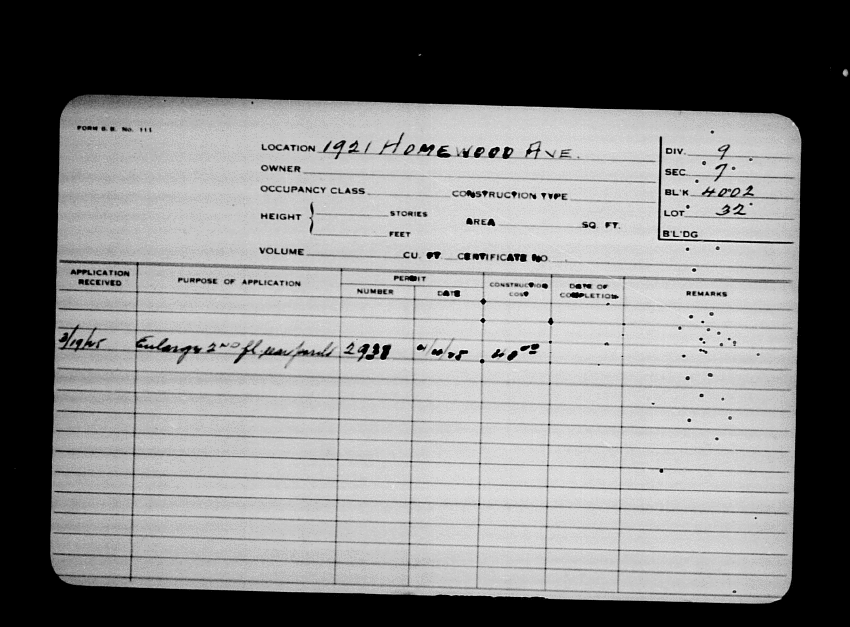 FORM B. B. No. 111
LOCATION 1921 HOMEWOOD AVE.
OWNER
OCCUPANCY CLASS CONSTRUCTION TYPE
HEIGHT STORIES AREA SQ. FT.
FEET
VOLUME CU. FT. CERTIFICATE NO.
DIV. 9
SEC. 7
BL'K 4002
LOT 32
B'L'DG
APPLICATION RECEIVED
PURPOSE OF APPLICATION
PERMIT
NUMBER DATE
CONSTRUCTION COST
DATE OF COMPLETION
REMARKS
3/19/25 Enlarge 2ND fl. rear 2938